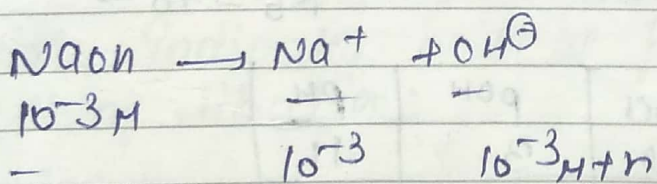 NaOH → Na⁺ + OH⊖
10⁻³M — —
— 10⁻³ 10⁻³M+n